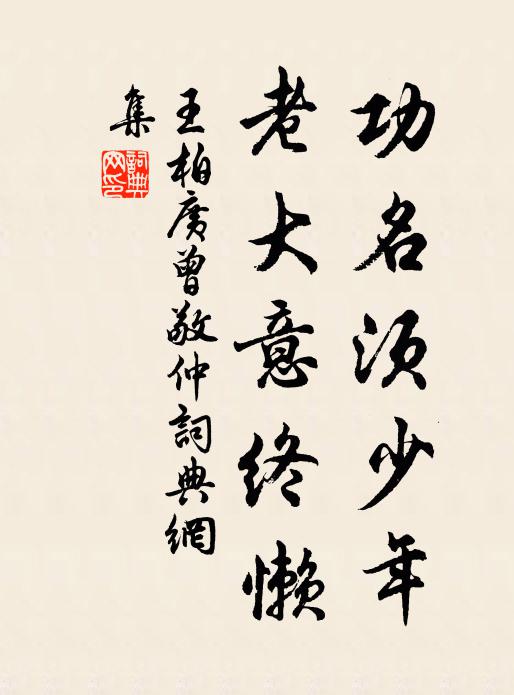 功名須少年
老大意終懶
王柏廣曾敬仲詞典網
集
詞典網印